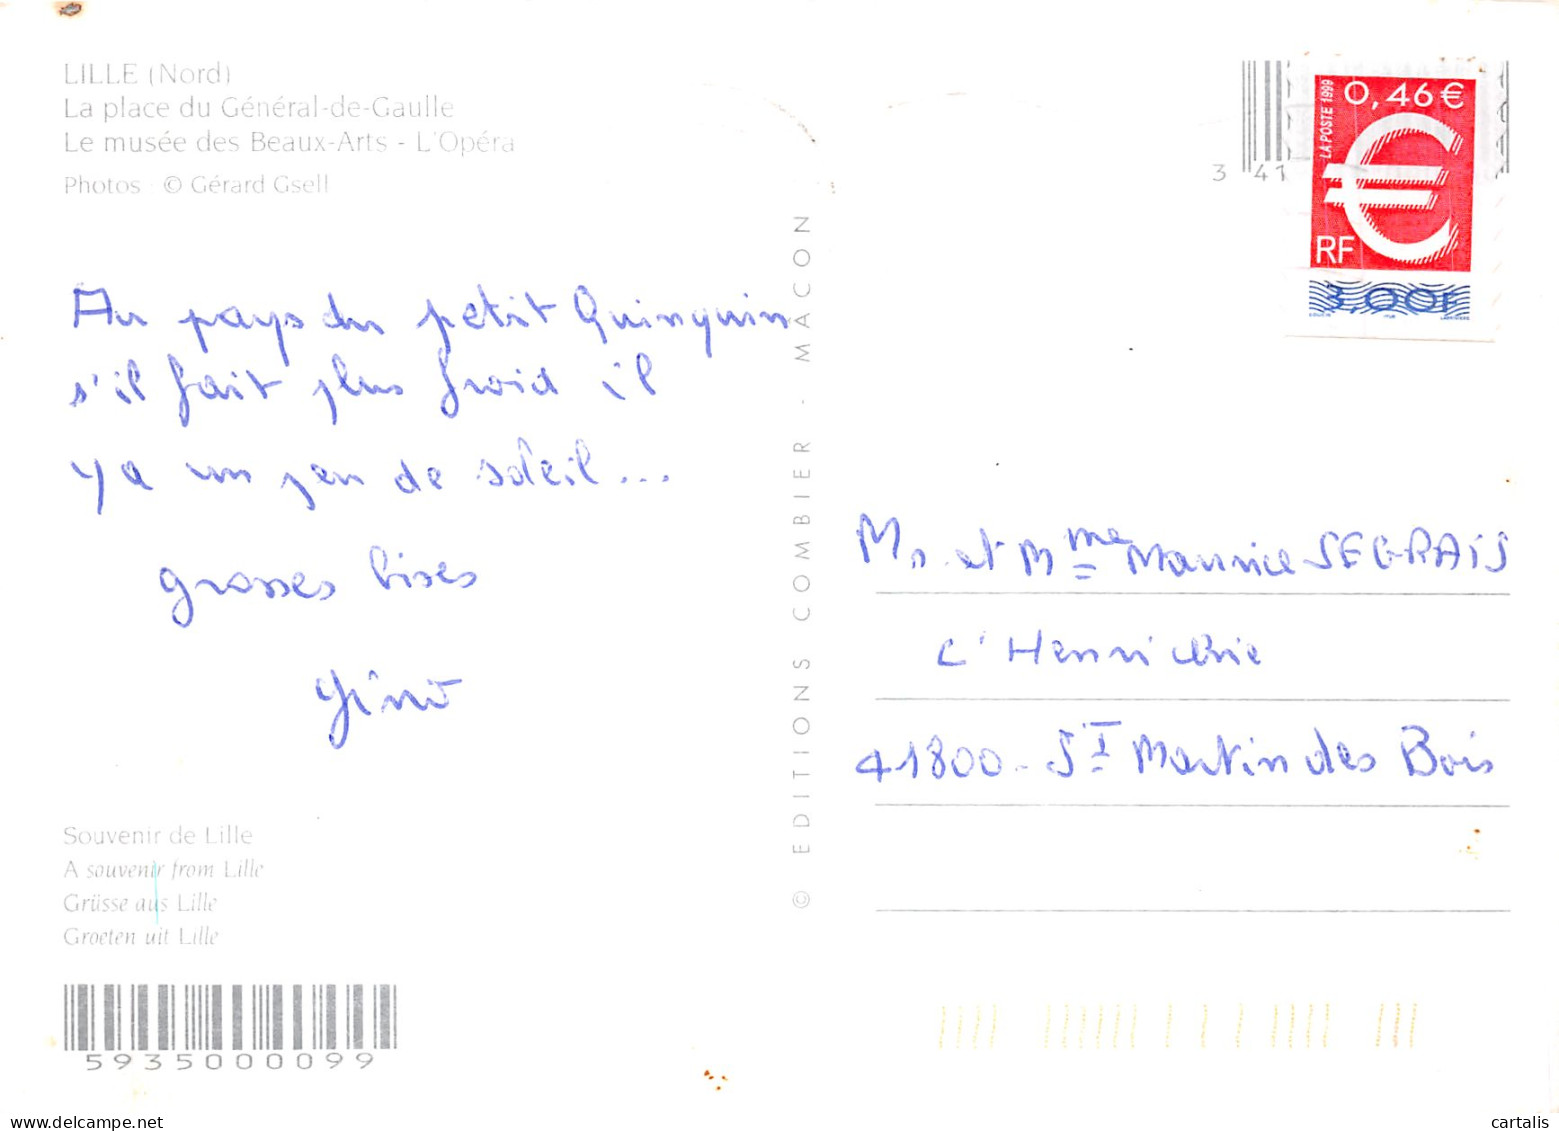 LILLE (Nord)
La place du Général-de-Gaulle
Le musée des Beaux-Arts - L'Opéra
Photos © Gérard Gsell
Au pays du petit Quinquin
s'il fait plus froid il
y a un peu de soleil...
grosses bises
Souvenir de Lille
A souvenir from Lille
Grüsse aus Lille
Groeten uit Lille
5935000099
© EDITIONS COMBIER - MACON
3 41
LA POSTE 1999
0,46 €
RF
3,00F
Mr et Mme Maurice SEGRAIS
L'Henrichie
41800 - St Martin des Bois
cartalis